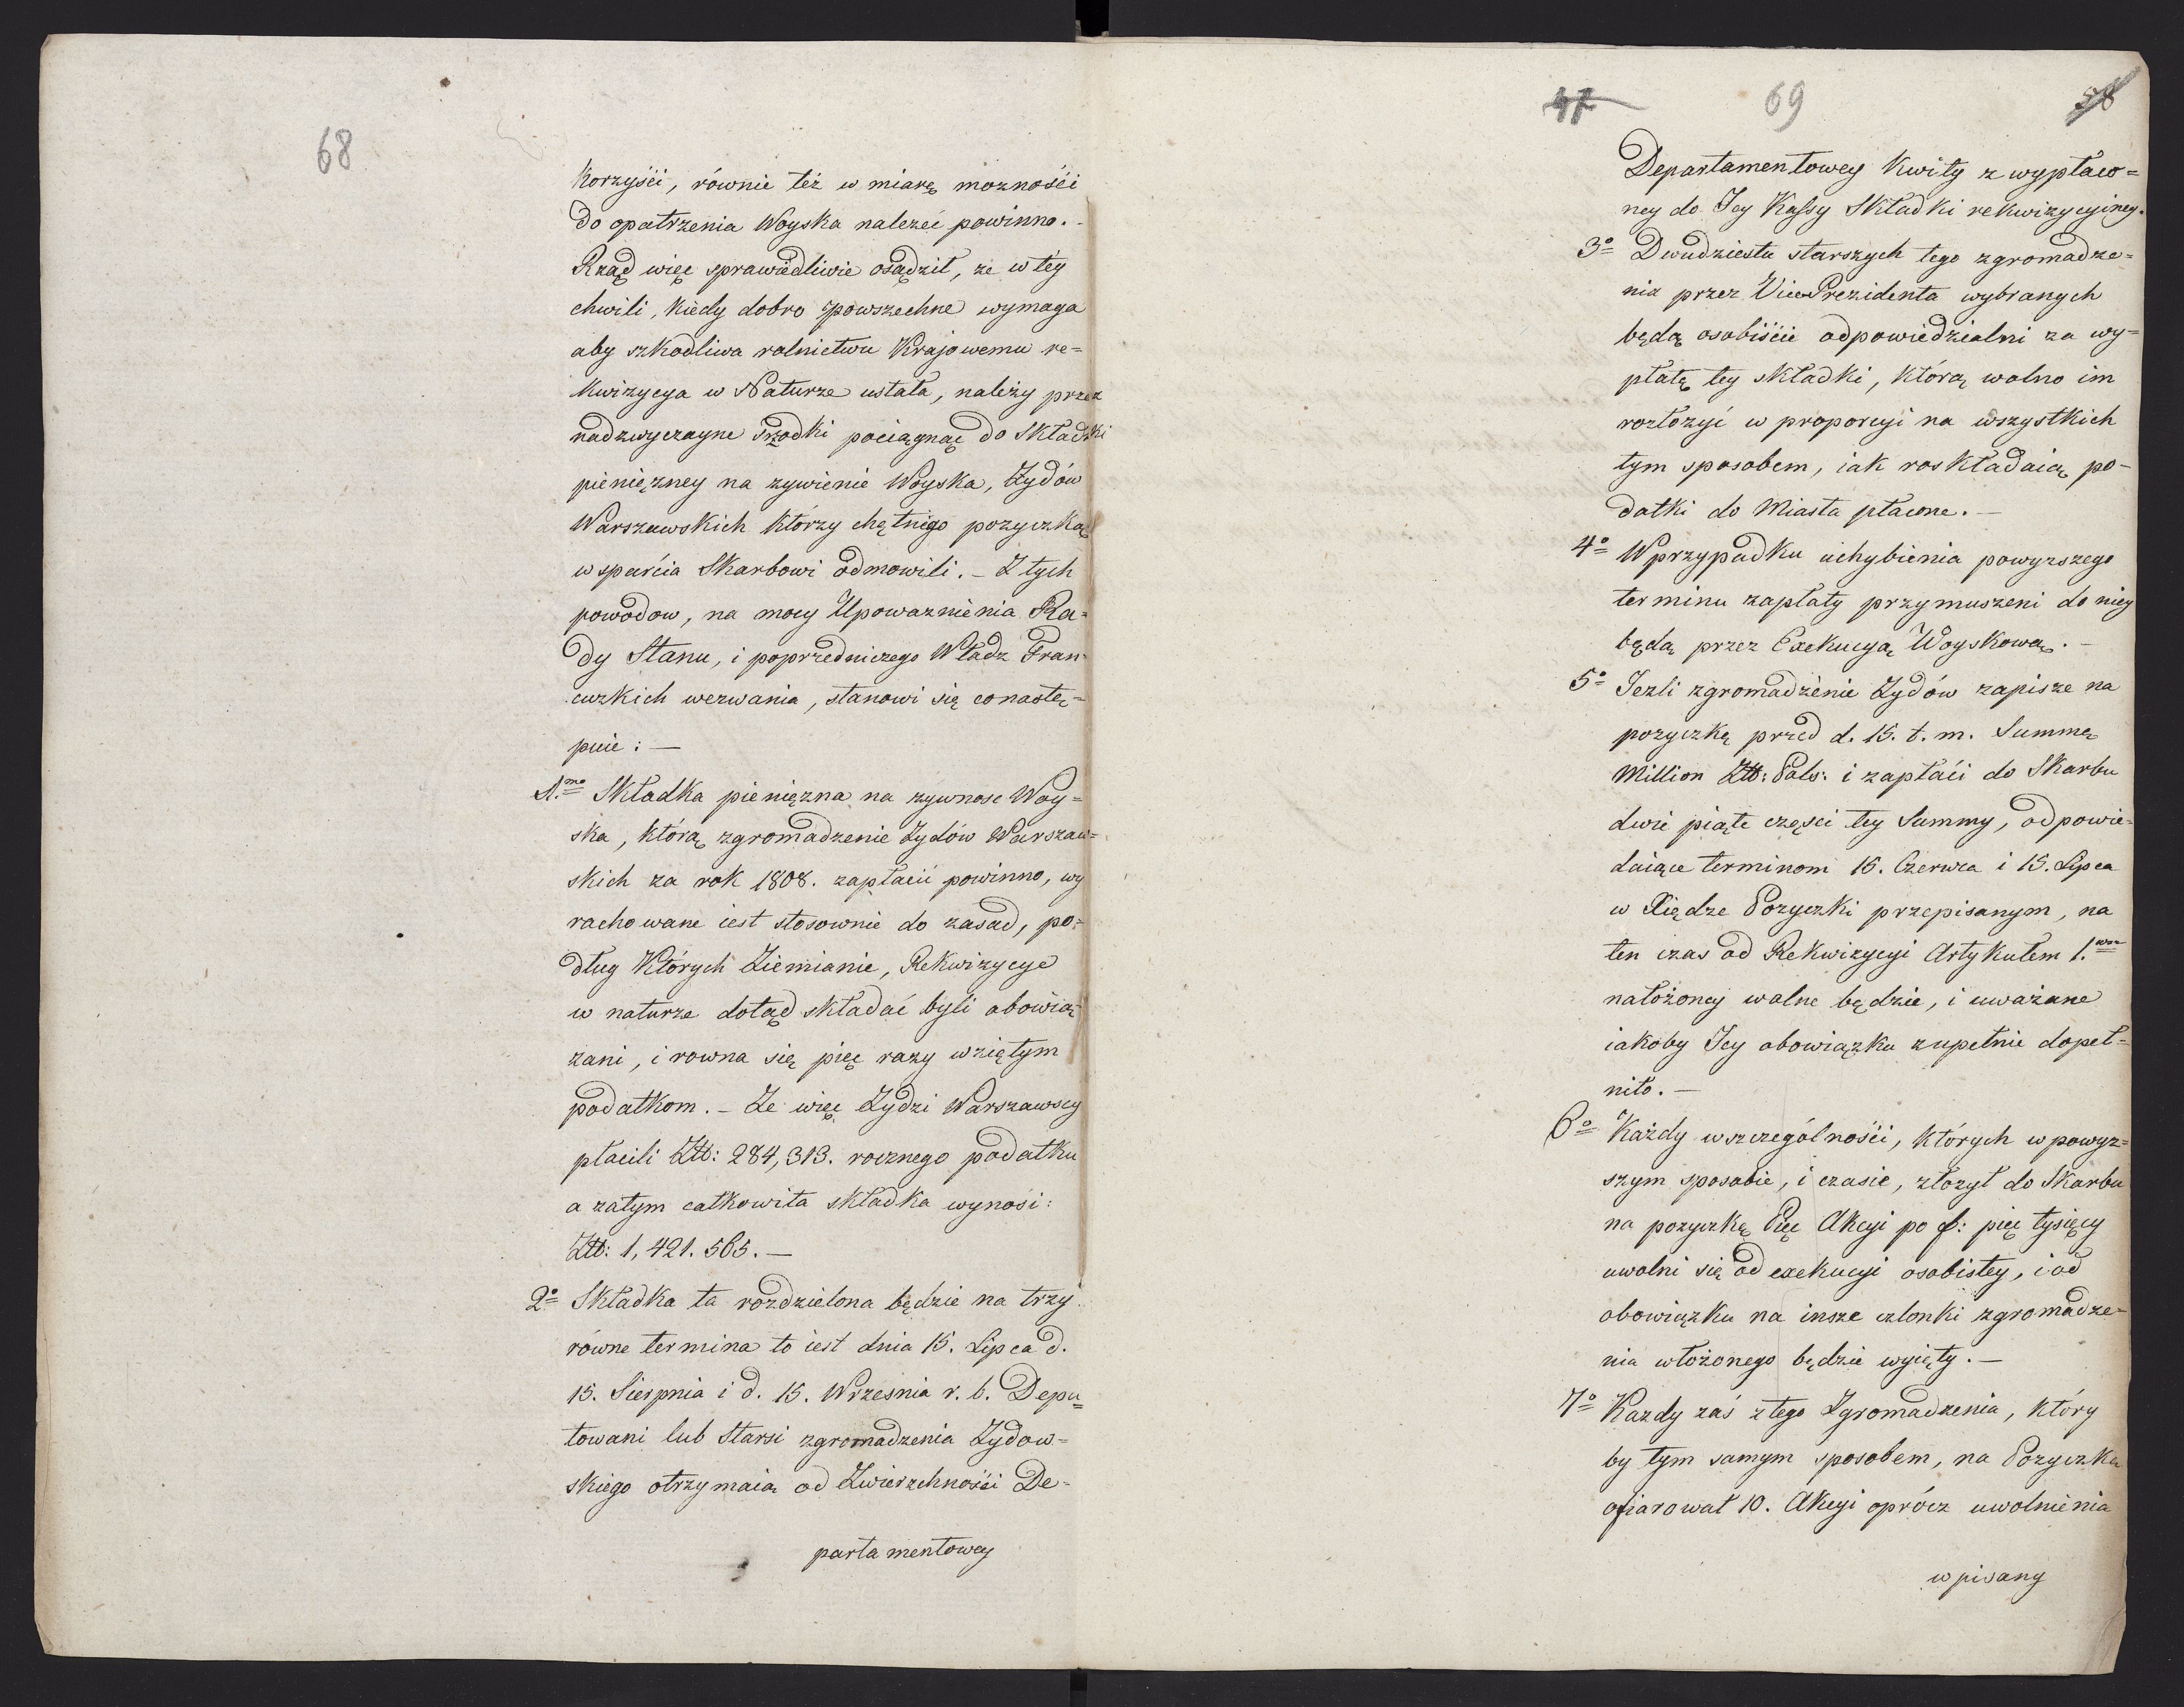 68
korzyści, równie też w miarę możności
do opatrzenia Woyska należeć powinno.
Rząd więc sprawiedliwie osądził, że w tey
chwili, kiedy dobro powszechne wymaga
aby szkodliwa rolnictwu Krajowemu re=
kwizycya w Naturze ustała, należy przez
nadzwyczayne śrzodki pociągnąć do Składki
pieniężney na żywienie Woyska, Żydów
Warszawskich którzy chętnigo pożyczką
wsparcia Skarbowi odmowili. – Z tych
powodow, na mocy Upoważnienia Ra=
dy Stanu, i poprzedniczego Władz Fran=
cuzkich wezwania, stanowi się co nastę=
puie: —
1.mo Składka pieniężna na żywnosc Woy=
ska, którą zgromadzenie Żydów Warszaw=
skich za rok 1808. zapłacić powinno, wy
rachowane iest stosownie do zasad, po=
dług których Ziemianie, Rekwizycye
w naturze dotąd składać byli obowią=
zani, i rowna się pięć razy wziętym
podatkom. – Że więc Żydzi Warszawscy
płacili Złł: 284,313. rocznego podatku
a zatym całkowita składka wynosi:
Złł: 1,421.565. —
2o Składka ta rozdzielona będzie na trzy
równe termina to iest dnia 15. Lipca d.
15. Sierpnia i d. 15. Września r. b. Depu=
towani lub Starsi zgromadzenia Żydow=
skiego otrzymaią od Zwierzchności De=
partamentowey
47 69 58
Departamentowey kwity z wypłaco=
ney do Jey Kassy Składki rekwizycyiney.
3o Dwudziestu starszych tego zgromadze=
nia przez VicePrezidenta wybranych
będą osobiście odpowiedzialni za wy=
płatę tey składki, którą wolno im
rozłożyć w proporcyi na wszystkich
tym sposobem, iak roskładaią po=
datki do Miasta płacone. —
4o W przypadku uchybienia powyższego
terminu zapłaty przymuszeni do niey
będą przez Exekucyą Woyskową. –
5o Jeżli zgromadzenie Żydów zapisze na
pożyczkę przed d. 15. t. m. Summę
Million Złł: Pols: i zapłaci do Skarbu
dwie piąte części tey Summy, odpowie=
daiące terminom 15. Czerwca i 15. Lipca
w Xiędze Pożyczki przepisanym, na
ten czas od Rekwizycyi Artykułem 1.wm
nałożoney wolne będzie, i uważane
iakoby Jey obowiązku zupełnie dopeł=
niło. —
6o Każdy wszczególności, których w powyż=
szym sposobie, i czasie, złożył do Skarbu
na pożyczkę Pięć Akcyi po f: pięć tysięcy
uwolni się od exekucyi osobistey, i od
obowiązku na insze członki zgromadze=
nia włożonego będzie wyięty. —
7o Każdy zaś z tego Zgromadzenia, który
by tym samym sposobem, na Pożyczkę
ofiarował 10. Akcyi oprócz uwolnienia
wpisany